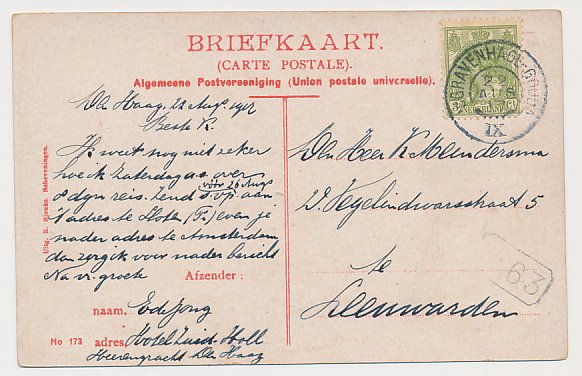 BRIEFKAART.
(CARTE POSTALE).
Algemeene Postvereeniging (Union postale universelle).
'S GRAVENHAGE-GOUDA
IX
Den Haag, 21 Aug. 1912
Beste K.
Ik weet nog niet zeker
hoe ik Zaterdag a.s. over
8 dgn reis. Zend s.v.p. aan
vóór 26 Aug
't adres te Holl (Z.) even je
nader adres te Amsterdam
dan zorg ik voor nader bericht
Na vr. groete
Afzender :
naam. Ed de Jong
adres Hotel Zuid-Holl
Heerengracht Den Haag
No 173
Uitg. B. Sjouke. Scheveningen.
Den Heer K. Meindersma
W. Vegelindwarsstraat 5
te
Leeuwarden
63